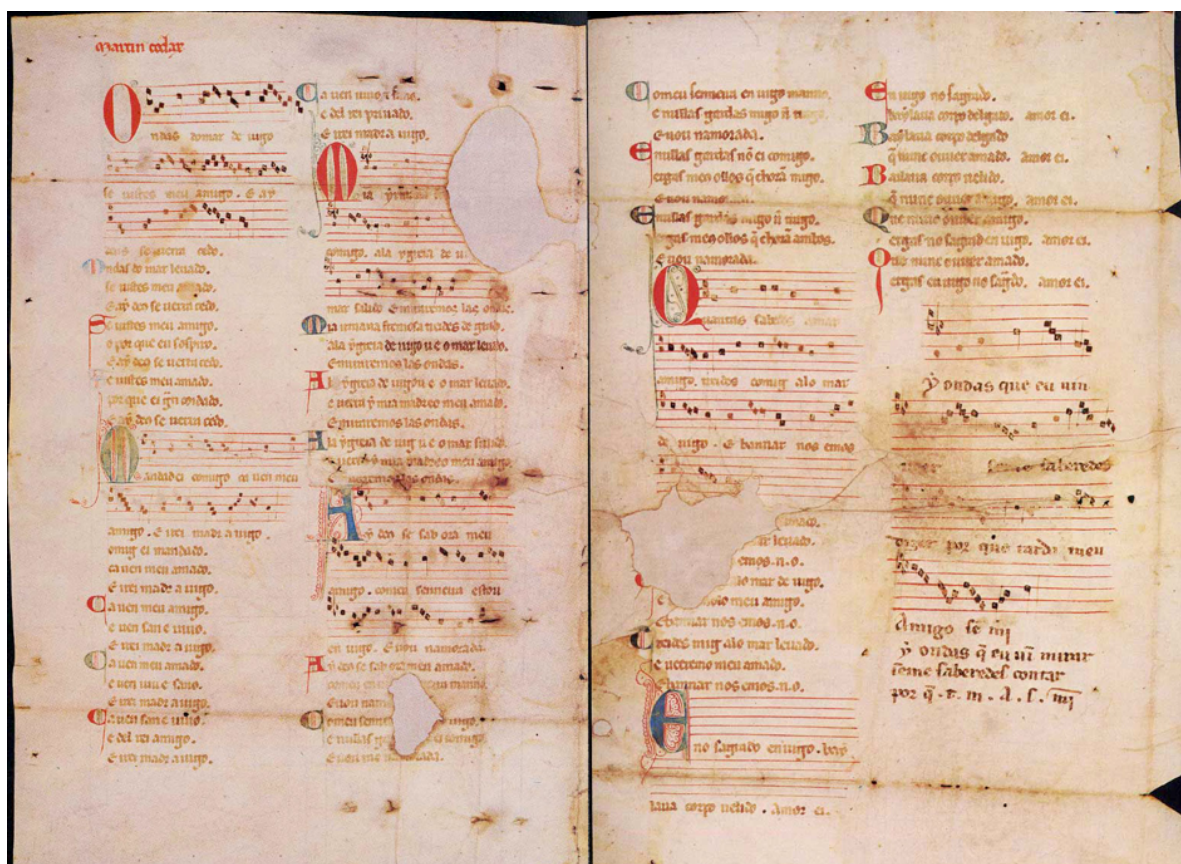 Martin codax
Ondas do mar de vigo
se vistes meu amigo. E ay
deus se verra cedo.
Ondas do mar levado.
se vistes meu amado.
E ay deus se verra cedo.
Se vistes meu amigo.
o por que eu sospiro.
E ay deus se verra cedo.
Se vistes meu amado.
por que ei gran coidado.
E ay deus se verra cedo.
Mandad ei comigo ca ven meu
amigo. E irei madr a vigo.
Comig ei mandado.
ca ven meu amado.
E irei madr a vigo.
Ca ven meu amigo.
e ven san e vivo.
E irei madr a vigo.
Ca ven meu amado.
e ven viv e sano.
E irei madr a vigo.
Ca ven san e vivo.
e del rei amigo.
E irei madr a vigo.
Ca ven viv e sano.
e del rei privado.
E irei madr a vigo.
Mia yrmana
comigo. ala ygreia de
mar salido. E miraremos las ondas.
Mia irmana fremosa treides de grado.
ala ygreia de vigo u e o mar levado.
E miraremos las ondas.
A la ygreia de vigo u e o mar levado.
e verra y mia madre o meu amado.
E miraremos las ondas.
A la ygreia de vig u e o mar salido.
e verra y mia madre o meu amigo.
E miraremos las ondas.
Ay deus se sab ora meu
amigo. com eu senneira estou
en vigo. E vou namorada.
Ay deus se sab ora meu amado.
com eu en
E vou nam
Com eu senn vigo.
e nullas g comigo.
E vou namorada.
Com eu senneira en vigo manno.
e nullas gardas migo ñ
E vou namorada.
E nullas gardas nõ ei comigo.
ergas meus ollos q̃ chorã migo.
E vou namorada.
E nullas gardas migo ñ trago.
ergas meus ollos q̃ chorã ambos.
E vou namorada.
Quantas sabedes amar
amigo. treides comig alo mar
de vigo. E bannar nos emos
amado.
ar levado.
emos. n. o.
alo mar de vigo.
e meu amigo.
E bannar nos emos. n. o.
Treides mig alo mar levado.
e veeremo meu amado.
E bannar nos emos. n. o.
Eno sagrado en vigo. bay
lava corpo velido. Amor ei.
En vigo no sagrado.
baylava corpo delgado. amor ei.
Baylava corpo delgado
q̃ nunc ouver amado. amor ei.
Bailava corpo velido.
q̃ nunc ouver amigo. Amor ei.
Que nunc ouver amigo.
ergas no sagrad en vigo. amor ei.
Que nunc ouver amado.
ergas en vigo no sagrado. amor ei.
Ay ondas que eu vin
veer se me saberedes
dizer por que tarda meu
Amigo se mi
y ondas q̃ eu vin mirar
se me saberedes contar
por q̃. t. m. A. s. mi